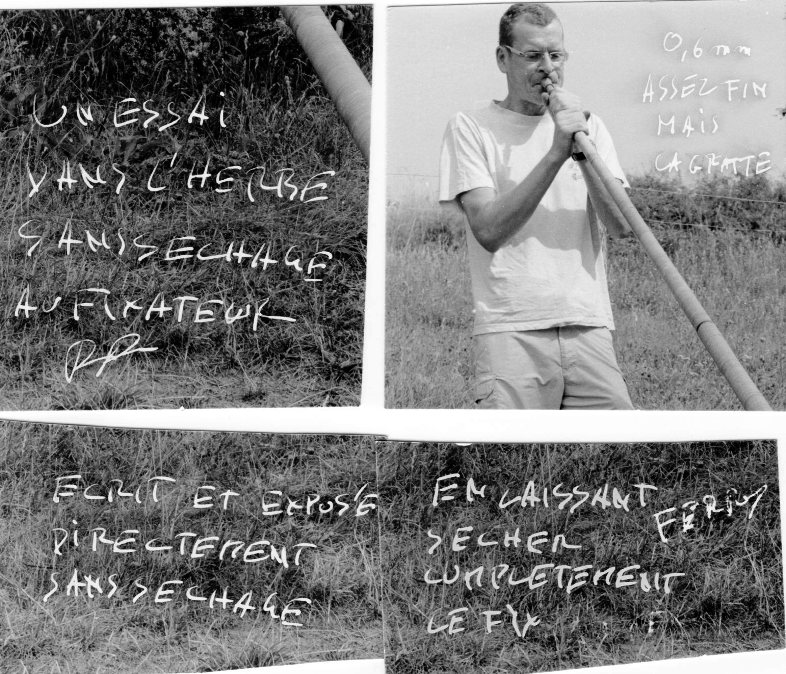 UN ESSAI
DANS L'HERBE
SANS SECHAGE
AU FIXATEUR
0,6 mm
ASSEZ FIN
MAIS
CA GRATTE
ECRIT ET EXPOSÉ
DIRECTEMENT
SANS SECHAGE
EN LAISSANT
SECHER
COMPLETEMENT
LE FIX